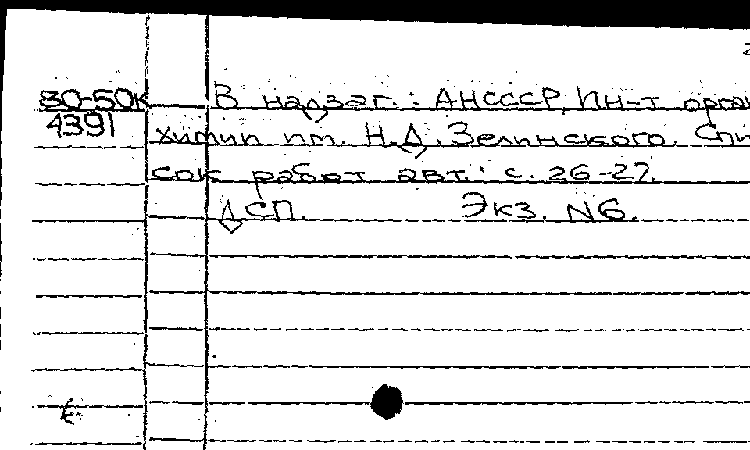 80-50К
4391
В надзаг.: АНСССР, Ин-т орган
химии им. Н.Д. Зелинского. Спи
сок работ авт.: с. 26-27.
ДСП. Экз. N6.